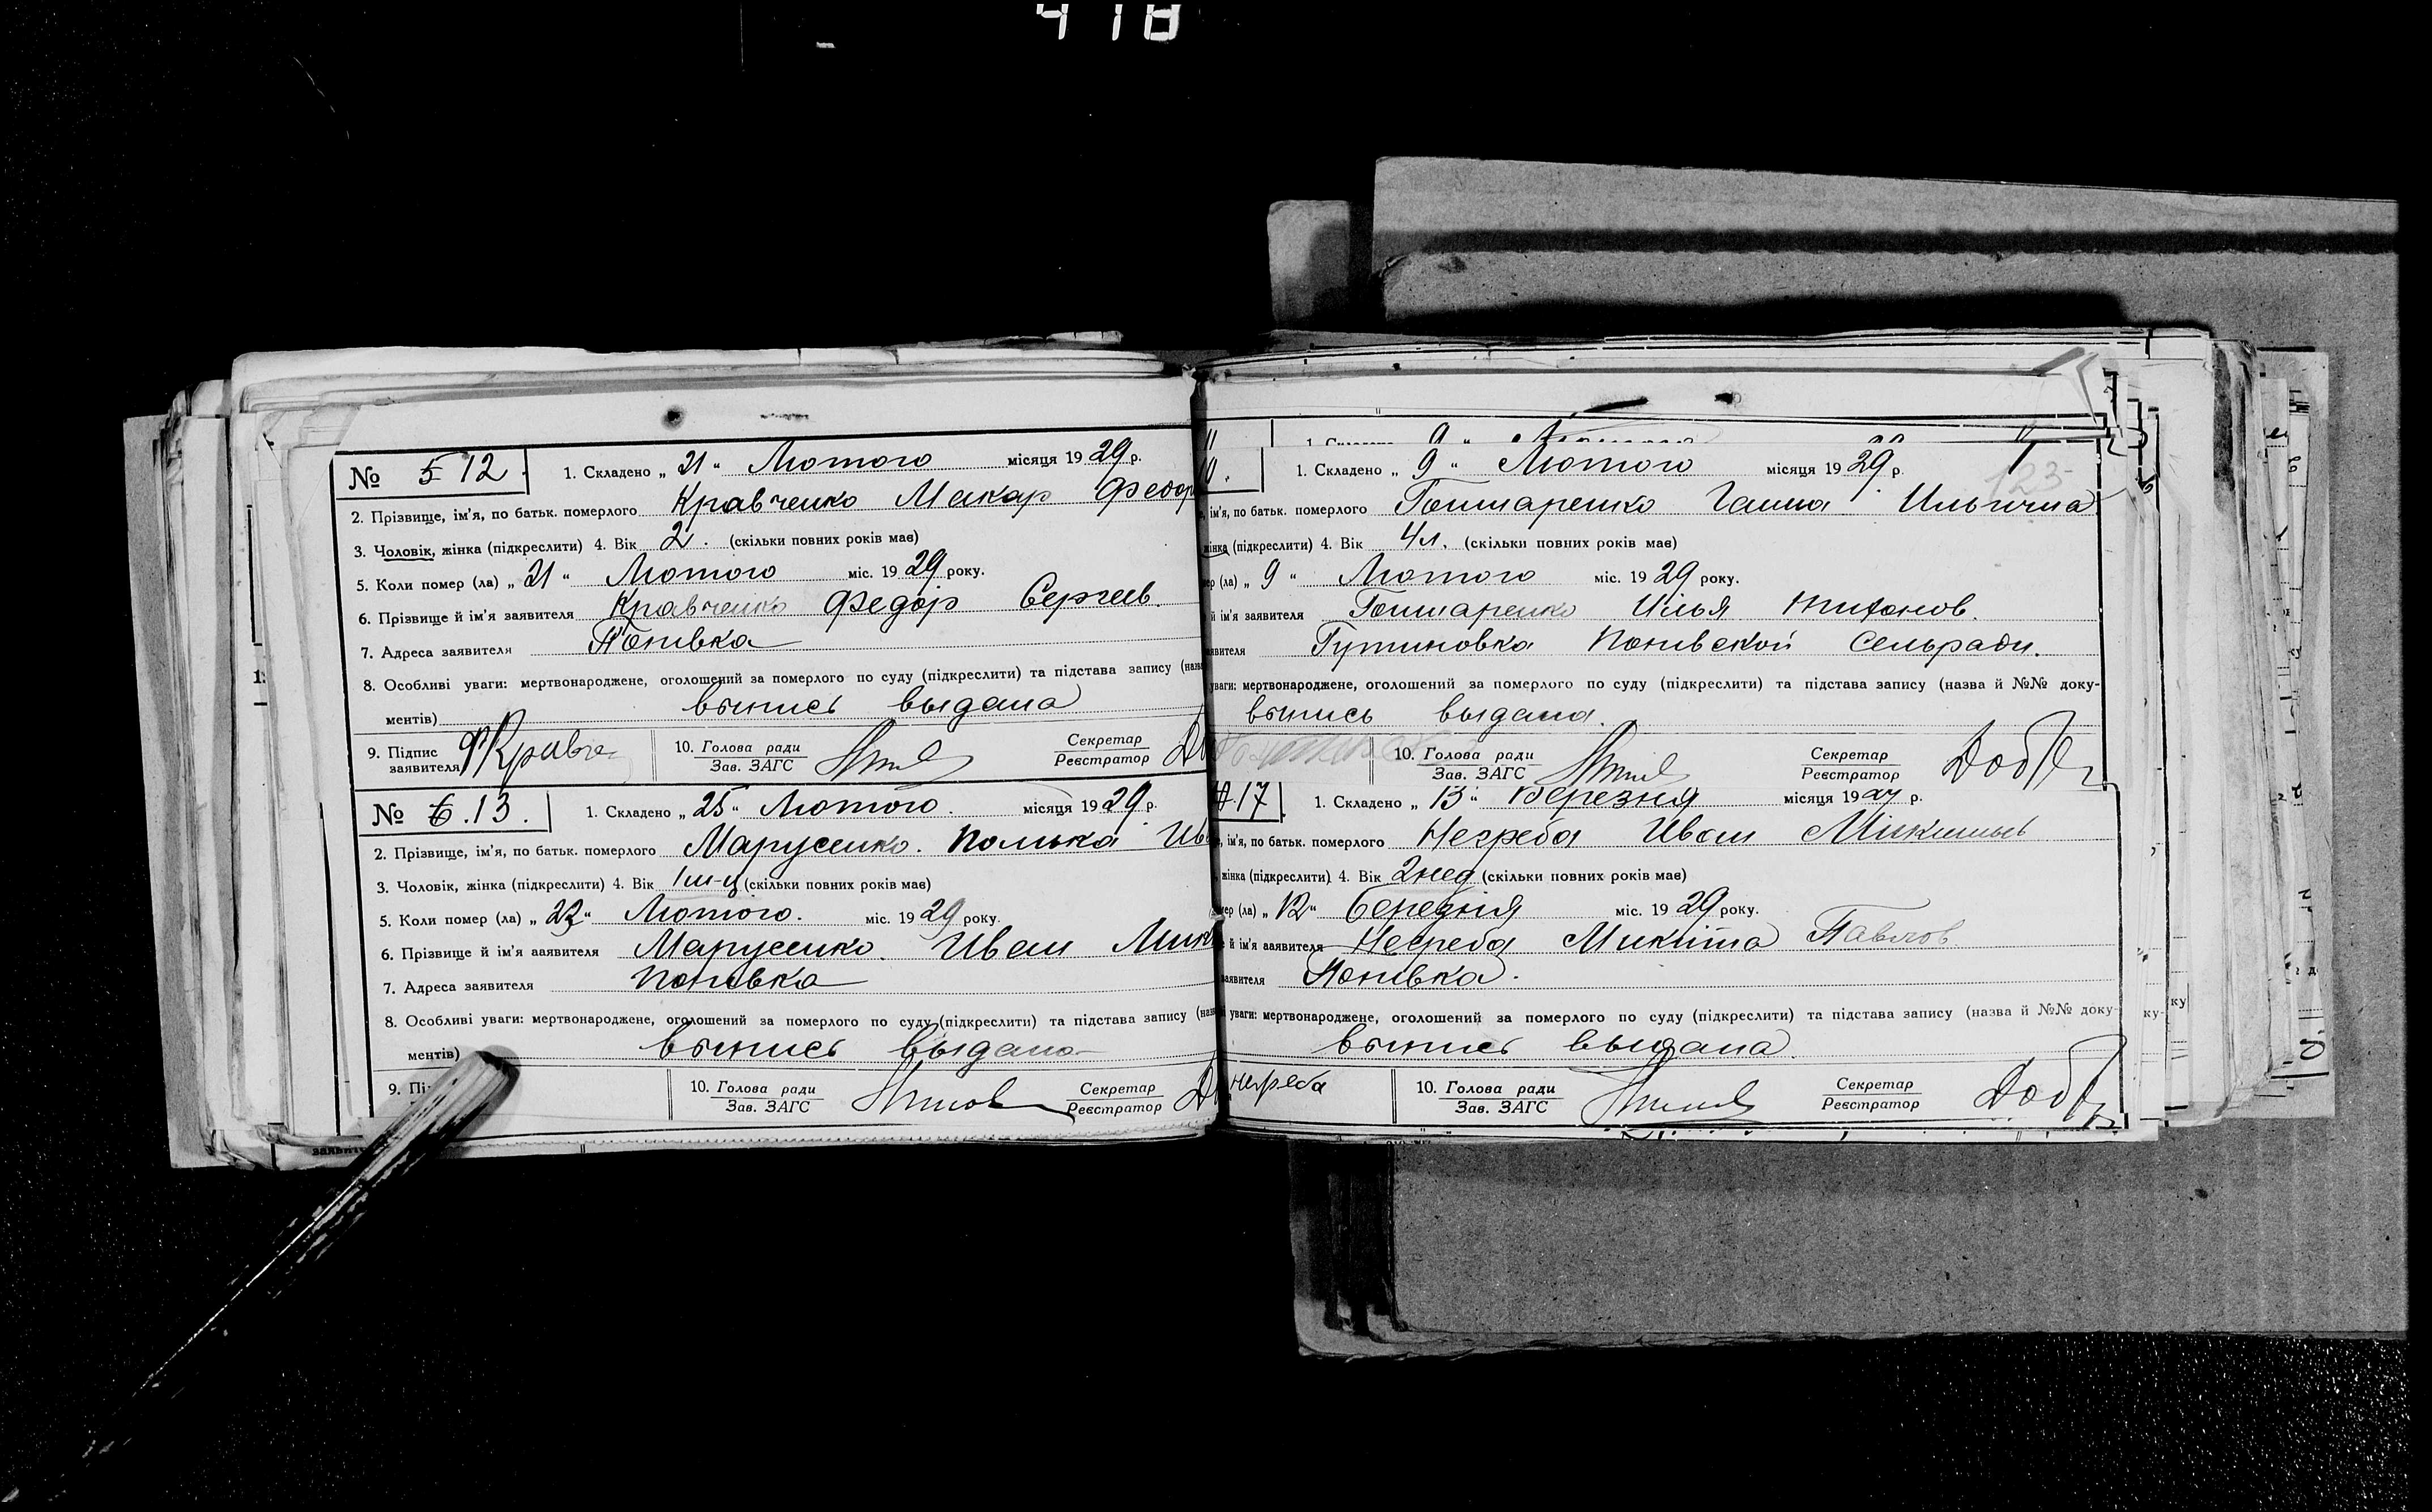 418
№ 5 12.
1. Складено „ 21 “ Лютого місяця 1929 р.
2. Прізвище, ім'я, по батьк. померлого Кравченко Макар Федор
3. Чоловік, жінка (підкреслити) 4. Вік 2. (скільки повних років має)
5. Коли помер (ла) „ 21 “ Лютого міс. 1929 року.
6. Прізвище й ім'я заявителя Кравченко Федор Сергеев.
7. Адреса заявителя Попивка
8. Особливі уваги: мертвонароджене, оголошений за померлого по суду (підкреслити) та підстава запису (назв
ментів) выпись выдана
9. Підпис заявителя ФКравче
10. Голова ради
Зав. ЗАГС
Секретар
Реєстратор
№ 6. 13.
1. Складено „ 25 “ Лютого. місяця 1929 р.
2. Прізвище, ім'я, по батьк. померлого Марусенко. Полька Ив
3. Чоловік, жінка (підкреслити) 4. Вік 1 м-ц (скільки повних років має)
5. Коли помер (ла) „ 22 “ Лютого. міс. 1929 року.
6. Прізвище й ім'я заявителя Марусенко. Иван Мик
7. Адреса заявителя Попивка
8. Особливі уваги: мертвонароджене, оголошений за померлого по суду (підкреслити) та підстава запису (наз
ментів) выпись выдана
9. Пі
10. Голова ради
Зав. ЗАГС
Секретар
Реєстратор
1. Складено „ 9 “ Лютого місяця 1929 р.
123
ім'я, по батьк. померлого Гоншаренко Ганна Ильична
жінка (підкреслити) 4. Вік 4 л. (скільки повних років має)
ер (ла) „ 9 “ Лютого міс. 1929 року.
й ім'я заявителя Гоншаренко Илья Тихонов.
аявителя Гутиновка Попивской Сельради.
уваги: мертвонароджене, оголошений за померлого по суду (підкреслити) та підстава запису (назва й №№ доку-
выпись выдана.
10. Голова ради
Зав. ЗАГС
Секретар
Реєстратор
Добр
17
1. Складено „ 13 “ Березня місяця 1929 р.
ім'я, по батьк. померлого Негреба Иван Микитыв
жінка (підкреслити) 4. Вік 2 нед (скільки повних років має)
ер (ла) „ 12 “ березня міс. 1929 року.
й ім'я заявителя Негреба Микита Павлов
заявителя Попивка.
уваги: мертвонароджене, оголошений за померлого по суду (підкреслити) та підстава запису (назва й №№ доку-
выпись выдана.
негреба
10. Голова ради
Зав. ЗАГС
Секретар
Реєстратор
Добр